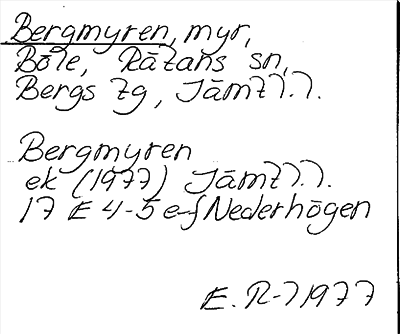 Bergmyren, myr,
Böle, Rätans sn,
Bergs tg, Jämtl.
Bergmyren
ek (1977) Jämtl.
17 E 4-5 e-f Nederhögen
E. R-7 1977